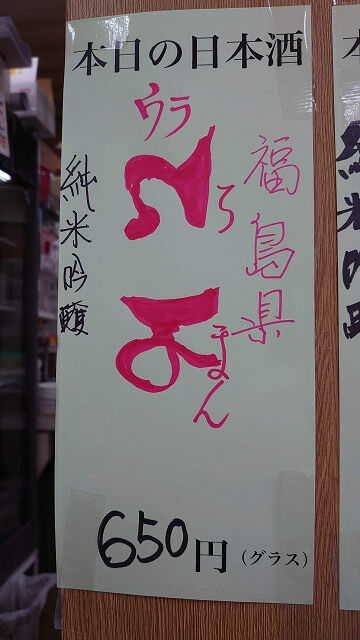 本日の日本酒
福島県
ウラ
ろまん
純米吟醸
650円(グラス)